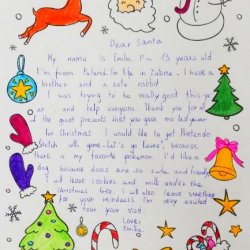 Dear Santa
My name is Emilia. I'm 13 years old
I'm from Poland. I'm life in Zabrze. I have a
brother and a cute rabbit.
I was trying to be really good this ye
ar and help everyone. Thank you for all
the great presents that you gave me last year.
For Christmas I would like to get Nintendo
Switch with game "Let's go Eevee", because
there is my favorite pokemon. I'd like a
dog because are so cute and friendly.
I will leave cookies and milk under the
Christmas tree. I will also leave something
for your reindeers. I'm very excited
for your visit.
Love,
Emilia